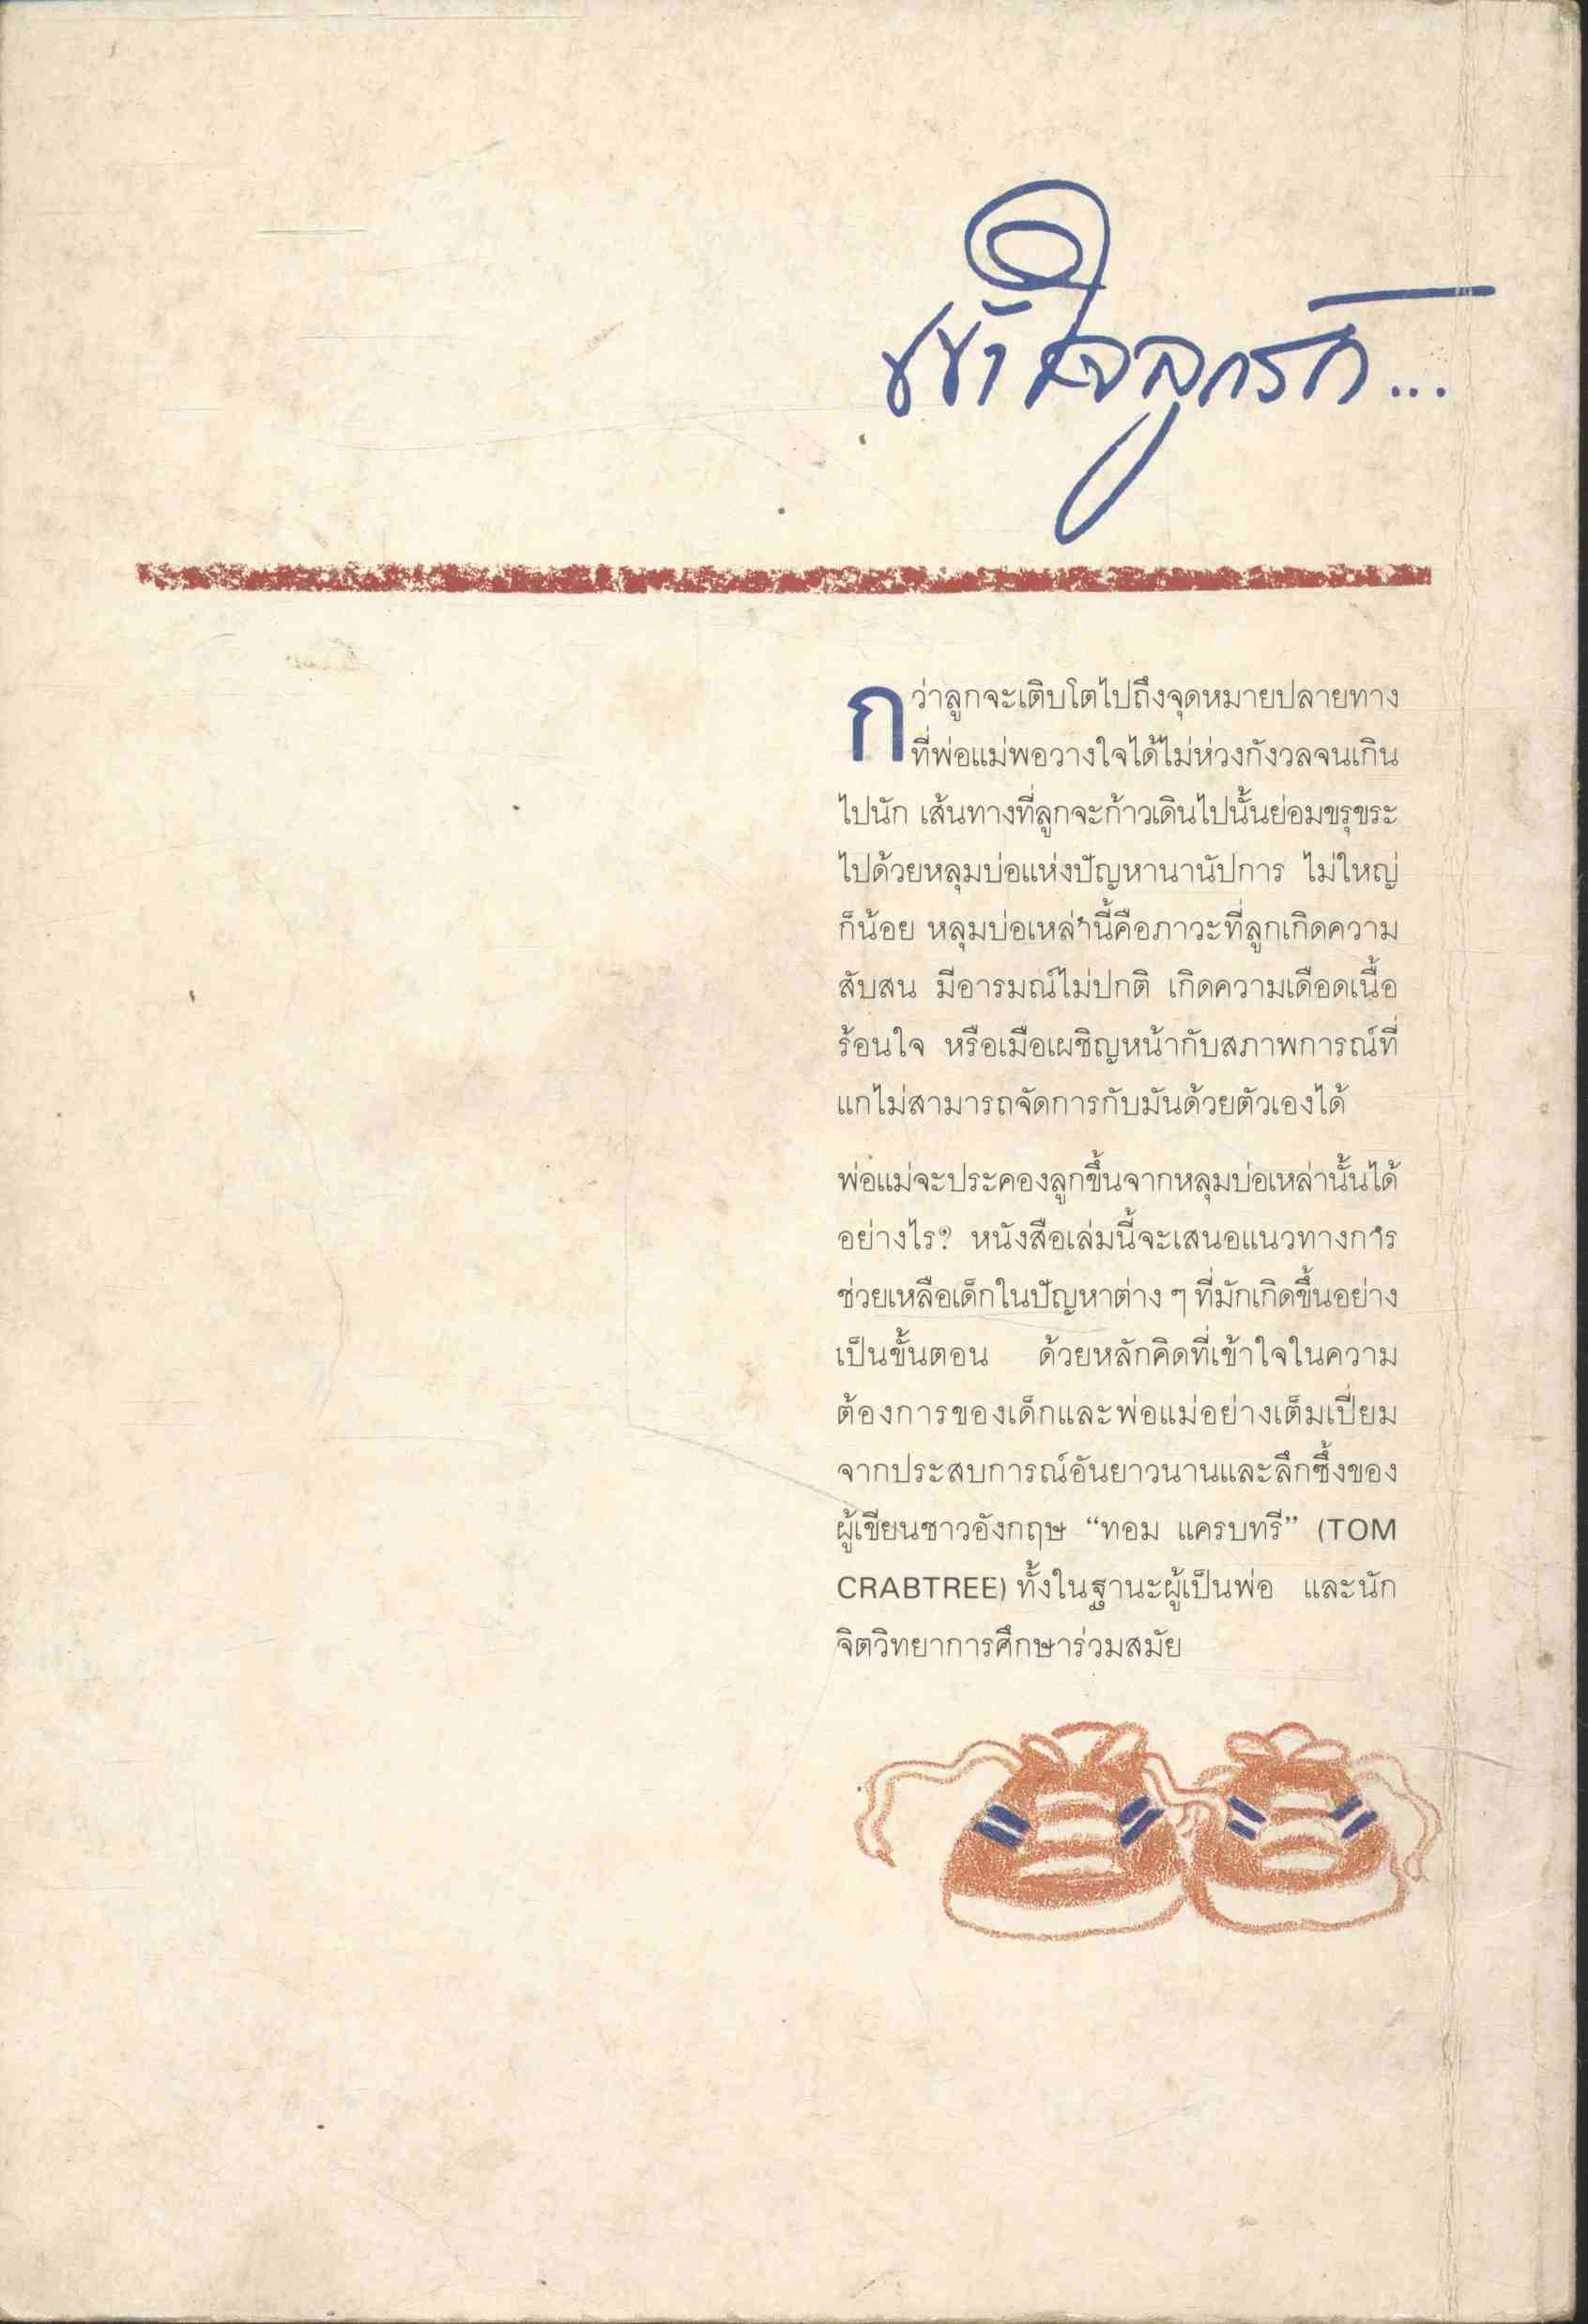 เข้าใจลูกรัก...
กว่าลูกจะเติบโตไปถึงจุดหมายปลายทาง
ที่พ่อแม่พอวางใจได้ไม่ห่วงกังวลจนเกิน
ไปนัก เส้นทางที่ลูกจะก้าวเดินไปนั้นย่อมขรุขระ
ไปด้วยหลุมบ่อแห่งปัญหานานัปการ ไม่ใหญ่
ก็น้อย หลุมบ่อเหล่านี้คือภาวะที่ลูกเกิดความ
สับสน มีอารมณ์ไม่ปกติ เกิดความเดือดเนื้อ
ร้อนใจ หรือเมื่อเผชิญหน้ากับสภาพการณ์ที่
แกไม่สามารถจัดการกับมันด้วยตัวเองได้
พ่อแม่จะประคองลูกขึ้นจากหลุมบ่อเหล่านั้นได้
อย่างไร? หนังสือเล่มนี้จะเสนอแนวทางการ
ช่วยเหลือเด็กในปัญหาต่าง ๆ ที่มักเกิดขึ้นอย่าง
เป็นขั้นตอน ด้วยหลักคิดที่เข้าใจในความ
ต้องการของเด็กและพ่อแม่อย่างเต็มเปี่ยม
จากประสบการณ์อันยาวนานและลึกซึ้งของ
ผู้เขียนชาวอังกฤษ “ทอม แครบทรี” (TOM
CRABTREE) ทั้งในฐานะผู้เป็นพ่อ และนัก
จิตวิทยาการศึกษาร่วมสมัย